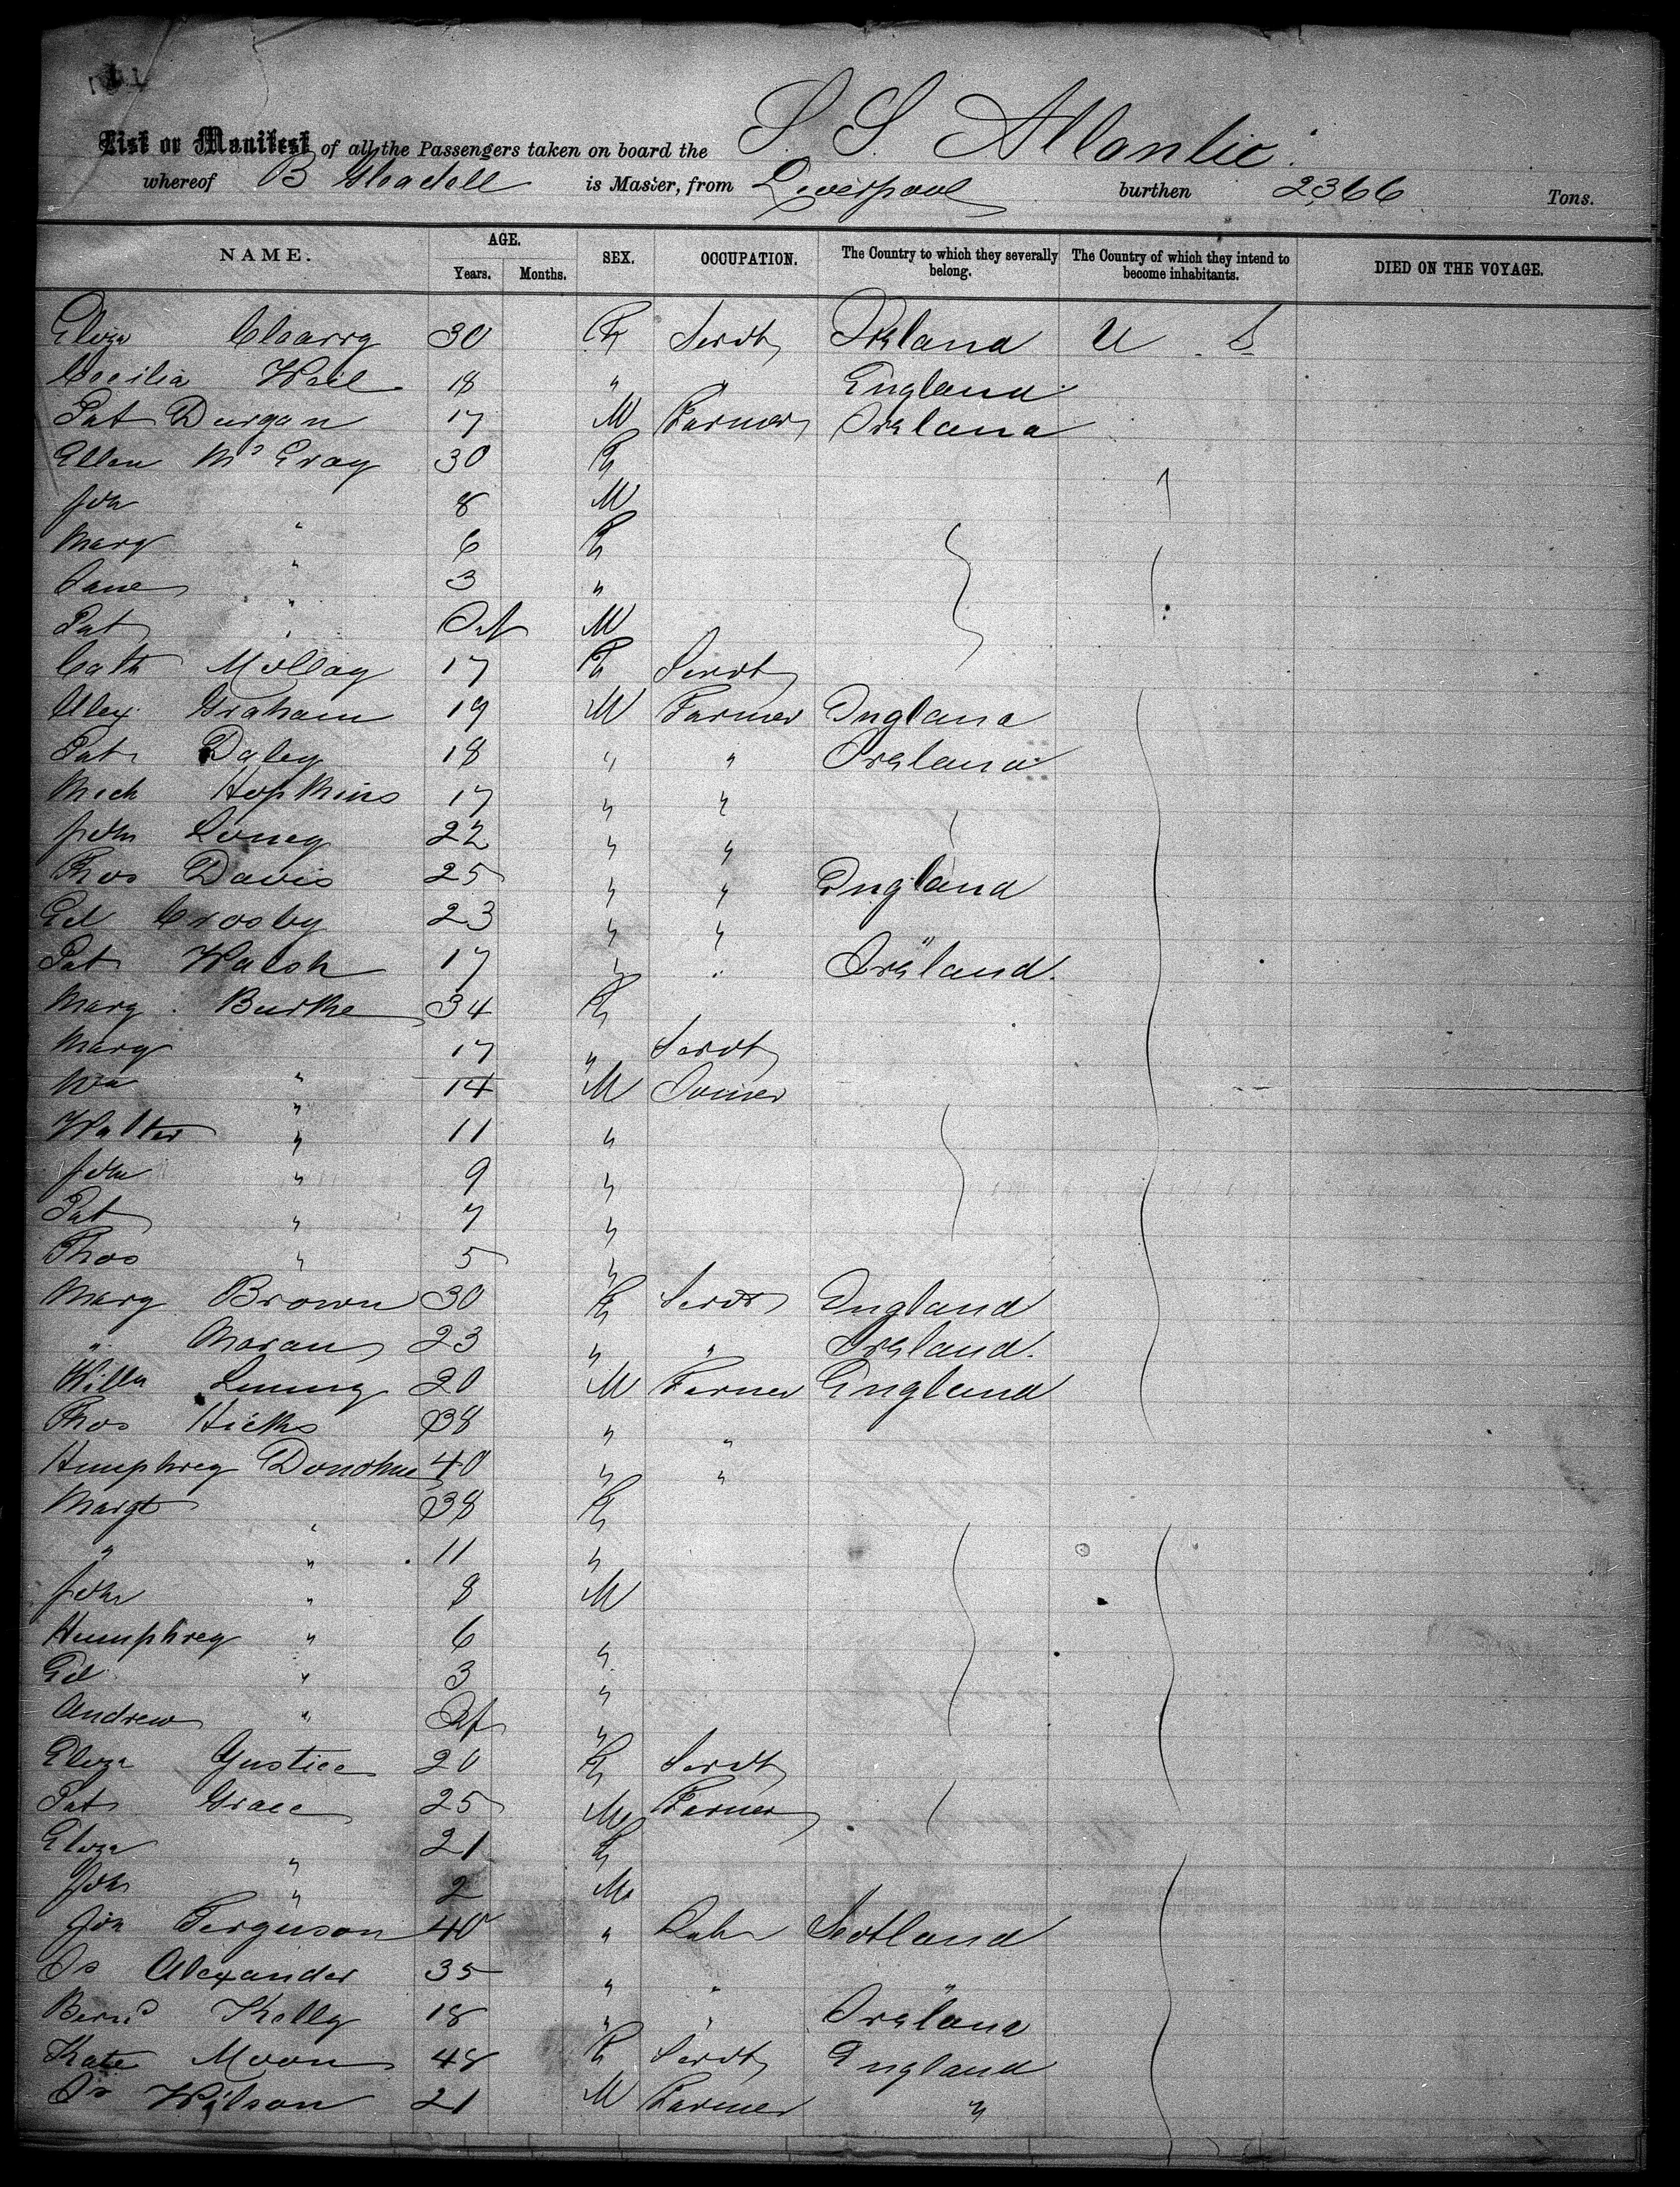 List or Manifest of all the Passengers taken on board the S. S. Atlantic.
whereof B Gleadell is Master, from Liverpool burthen 2366 Tons.
NAME. AGE. SEX. OCCUPATION. The Country to which they severally belong. The Country of which they intend to become inhabitants. DIED ON THE VOYAGE.
Years. Months.
Eliza Clearry 30 F Servt Ireland U S
Cecilia Weil 18 " " England
Pat Durgan 17 M Farmer Ireland
Ellen McGray 30 F
Jon " 8 M
Mary " 6 F
Jane " 3 "
Pat " Inf M
Cath Molloy 17 F Servt
Alex Graham 19 M Farmer England
Pat Daley 18 " " Ireland
Mich Hopkins 17 " "
John Loney 22 " "
Thos Davis 25 " " England
Ed Crosby 23 " " "
Pat Walsh 17 " " Ireland
Mary Burke 34 F
Mary " 17 " Servt
Wm " 14 M Joiner
Walter " 11 "
John " 9 "
Pat " 7 "
Thos " 5 "
Mary Brown 30 F Servt England
" Moran 23 " " Ireland
Willm 20 M Farmer England
Thos Hicks 38 " "
Humphrey Donohue 40 " "
Margt " 38 F
" " 11 "
John " 8 M
Humphrey " 6 "
Ed " 3 "
Andrew " Inf "
Eliza Justice 20 F Servt
Pat Grace 25 M Farmer
Eliza " 21 F
John " 2 M
Jon Ferguson 40 " Lab Scotland
Js Alexander 35 " " "
Bernd Kelly 18 " " Ireland
Kate Moon 48 F Servt England
Js Wilson 21 M Farmer "